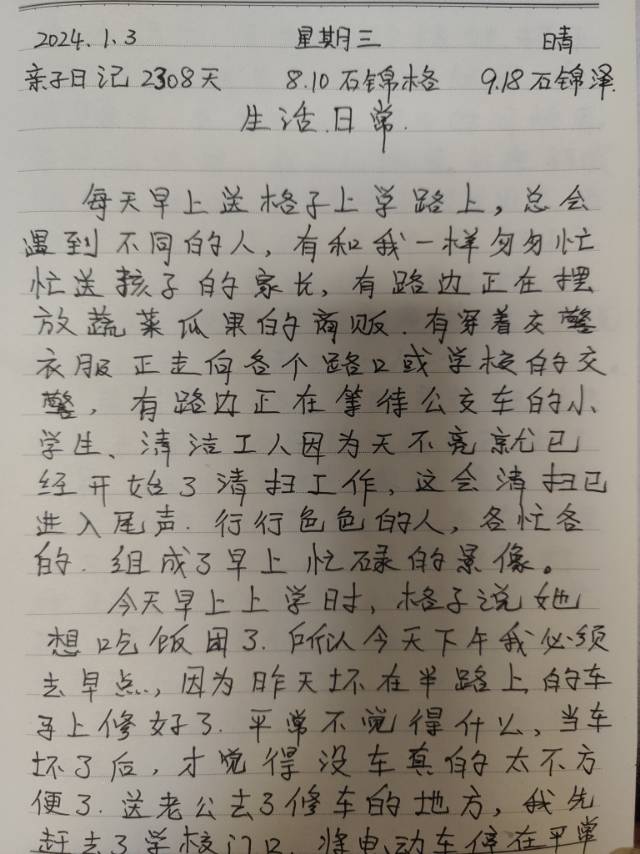 2024.1.3 星期三 晴
亲子日记2308天 8.10石锦格 9.18石锦泽
生活.日常.
每天早上送格子上学路上，总会
遇到不同的人，有和我一样匆匆忙
忙送孩子的家长，有路边正在摆
放蔬菜瓜果的商贩.有穿着交警
衣服正走向各个路口或学校的交
警，有路边正在等待公交车的小
学生、清洁工人因为天不亮就已
经开始了清扫工作，这会清扫已
进入尾声.行行色色的人，各忙各
的.组成了早上忙碌的景像。
今天早上上学时，格子说她
想吃饭团了.所以今天下午我必须
去早点，因为昨天坏在半路上的车
子上修好了.平常不觉得什么，当车
坏了后，才觉得没车真的太不方
便了.送老公去了修车的地方，我先
赶去了学校门口.将电动车停在平常